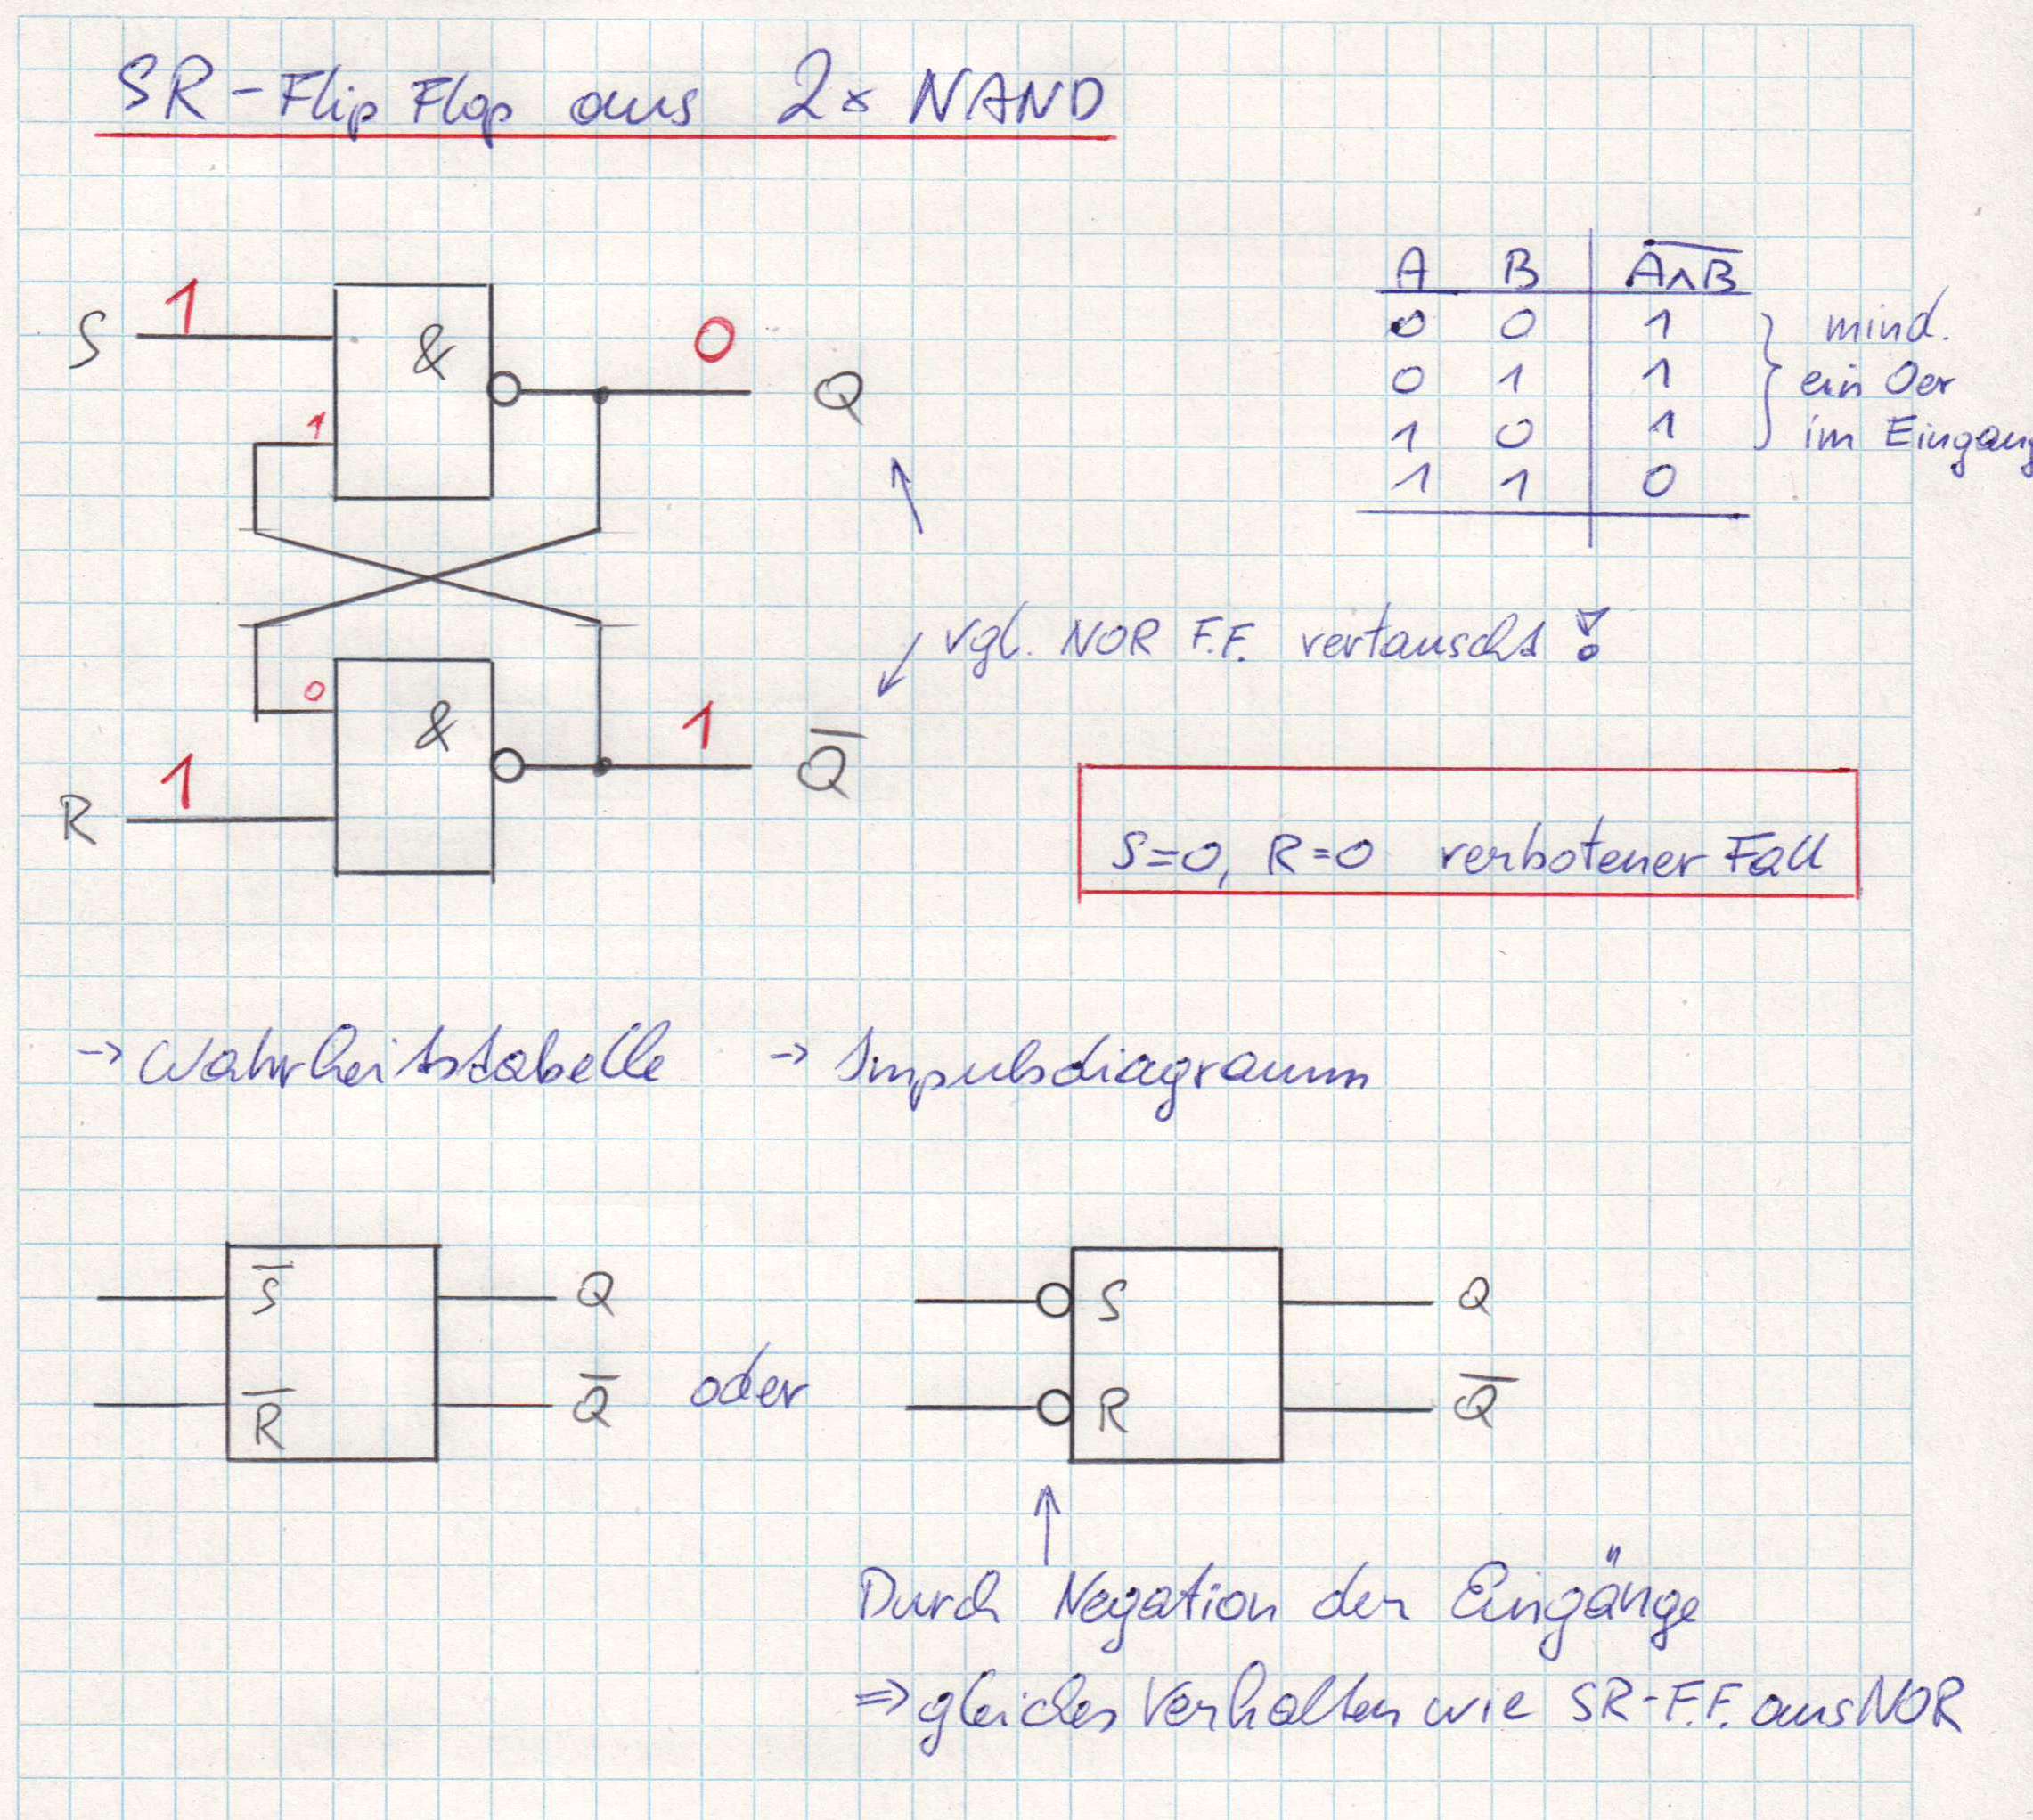 SR-Flip Flop aus 2x NAND
S 1 & 0 Q
1
0
R 1 & 1 Q̅
A B A̅∧̅B̅
0 0 1
0 1 1
1 0 1
1 1 0
} mind.
ein 0er
im Eingang
vgl. NOR F.F. vertauscht!
S=0, R=0 verbotener Fall
→ Wahrheitstabelle → Impulsdiagramm
S̅ Q
R̅ Q̅
oder
S Q
R Q̅
Durch Negation der Eingänge
⇒ gleiches Verhalten wie SR-F.F. aus NOR